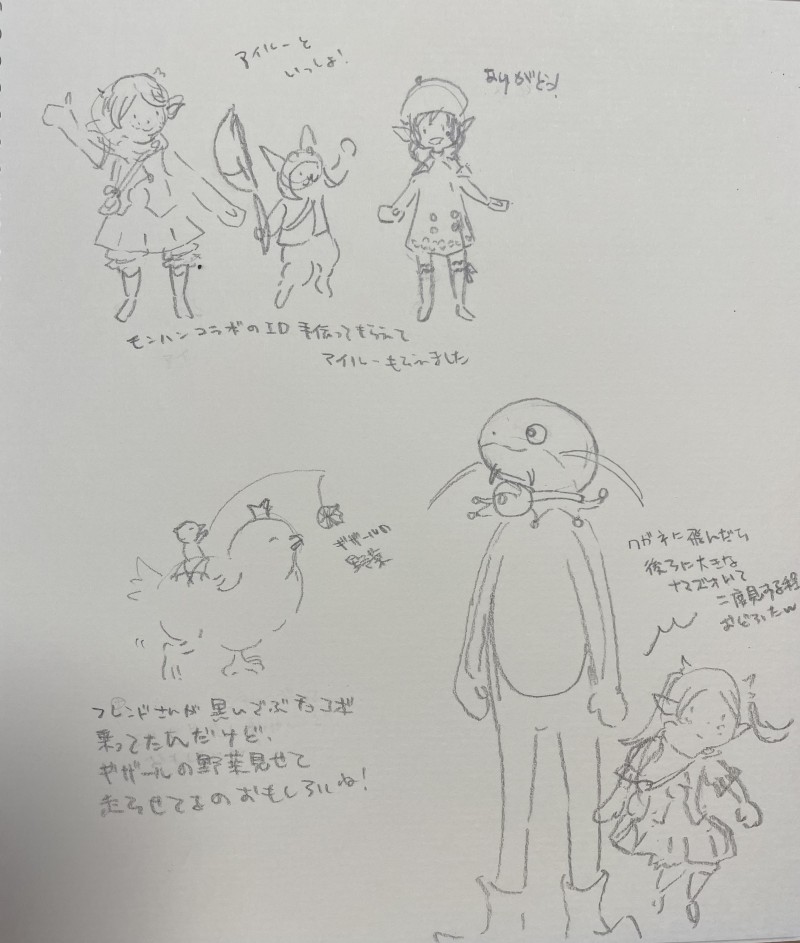 アイルーと
いっしょ!
ありがとう!
モンハンコラボのID 手伝ってもらえて
アイルーもらいました
ギザールの
野菜
フレンドさんが 黒いでぶチョコボ
乗ってたんだけど、
ギザールの野菜見せて
走らせてるのおもしろいね!
クガネに飛んだら
後ろに大きな
ナマズオいて
二度見する程
おどろいたw